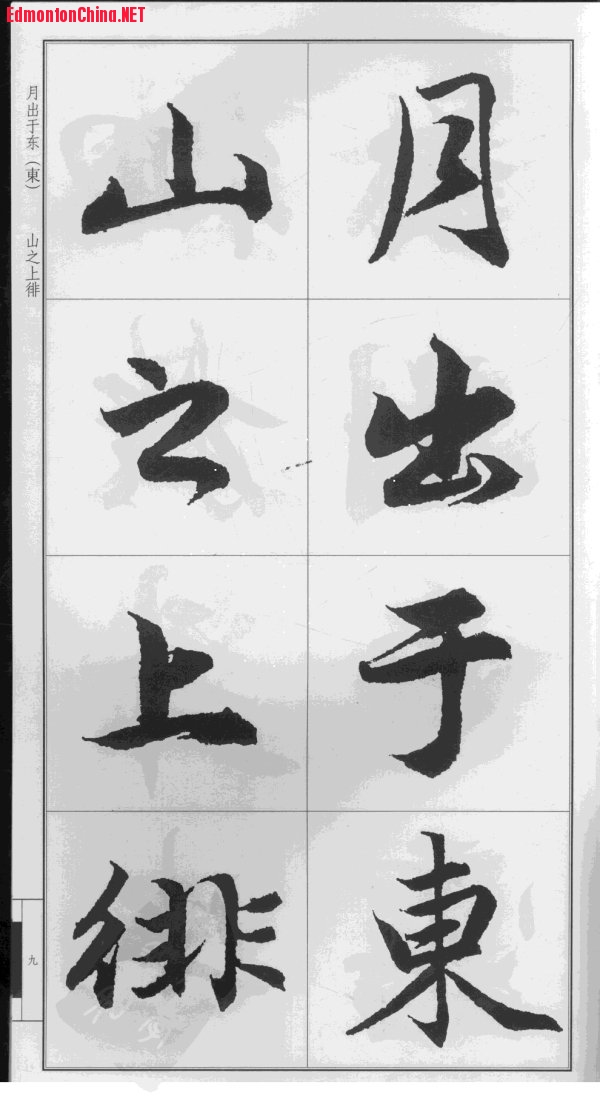 EdmontonChina.NET
月出于东（東） 山之上徘
月出于東
山之上徘
九